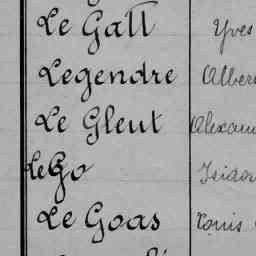 Le Gall Yves
Legendre Alber
Le Gleut Alexan
Le Go Isidor
Le Goas Louis